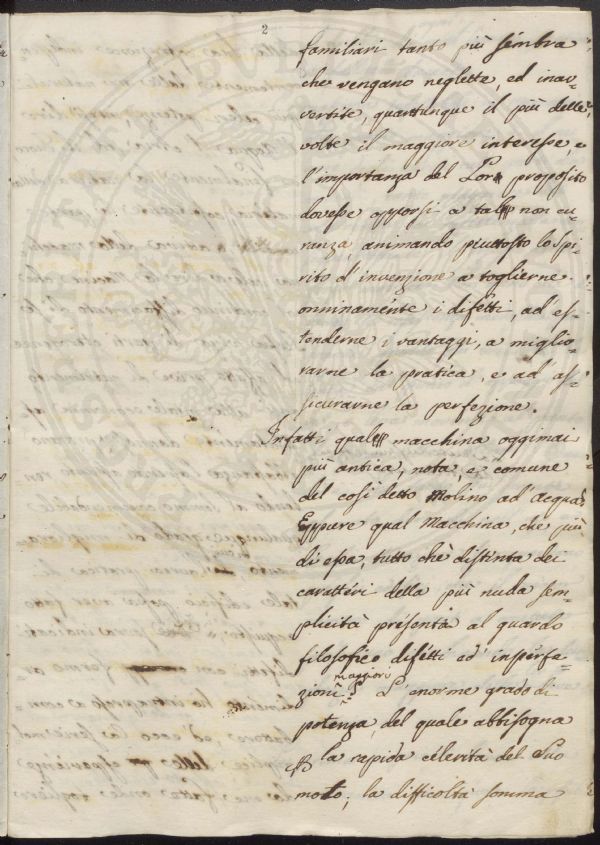 2
familiari tanto più sembra
che vengano neglette, ed inav-
vertite, quantunque il più delle
volte il maggiore interesse, e
l'importanza del Lor proposito
dovesse opporsi a tal non cu-
ranza, animando piuttosto lo Spi-
rito d'invenzione a toglierne
onninamente i difetti, ad es-
tenderne i vantaggi, a miglio-
rarne la pratica, e ad as-
sicurarne la perfezione.
Infatti qual macchina oggimai
più antica, nota, e comune
del così detto Molino ad'acqua?
Eppure qual Macchina, che più
di essa, tutto chè distinta dei
caratteri della più nuda sem-
plicità presenta al guardo
filosofico difetti ed' imperfe-
maggiori
zioni? L'enorme grado di
potenza, del quale abbisogna
la rapida celerità del Suo
moto; la difficoltà somma